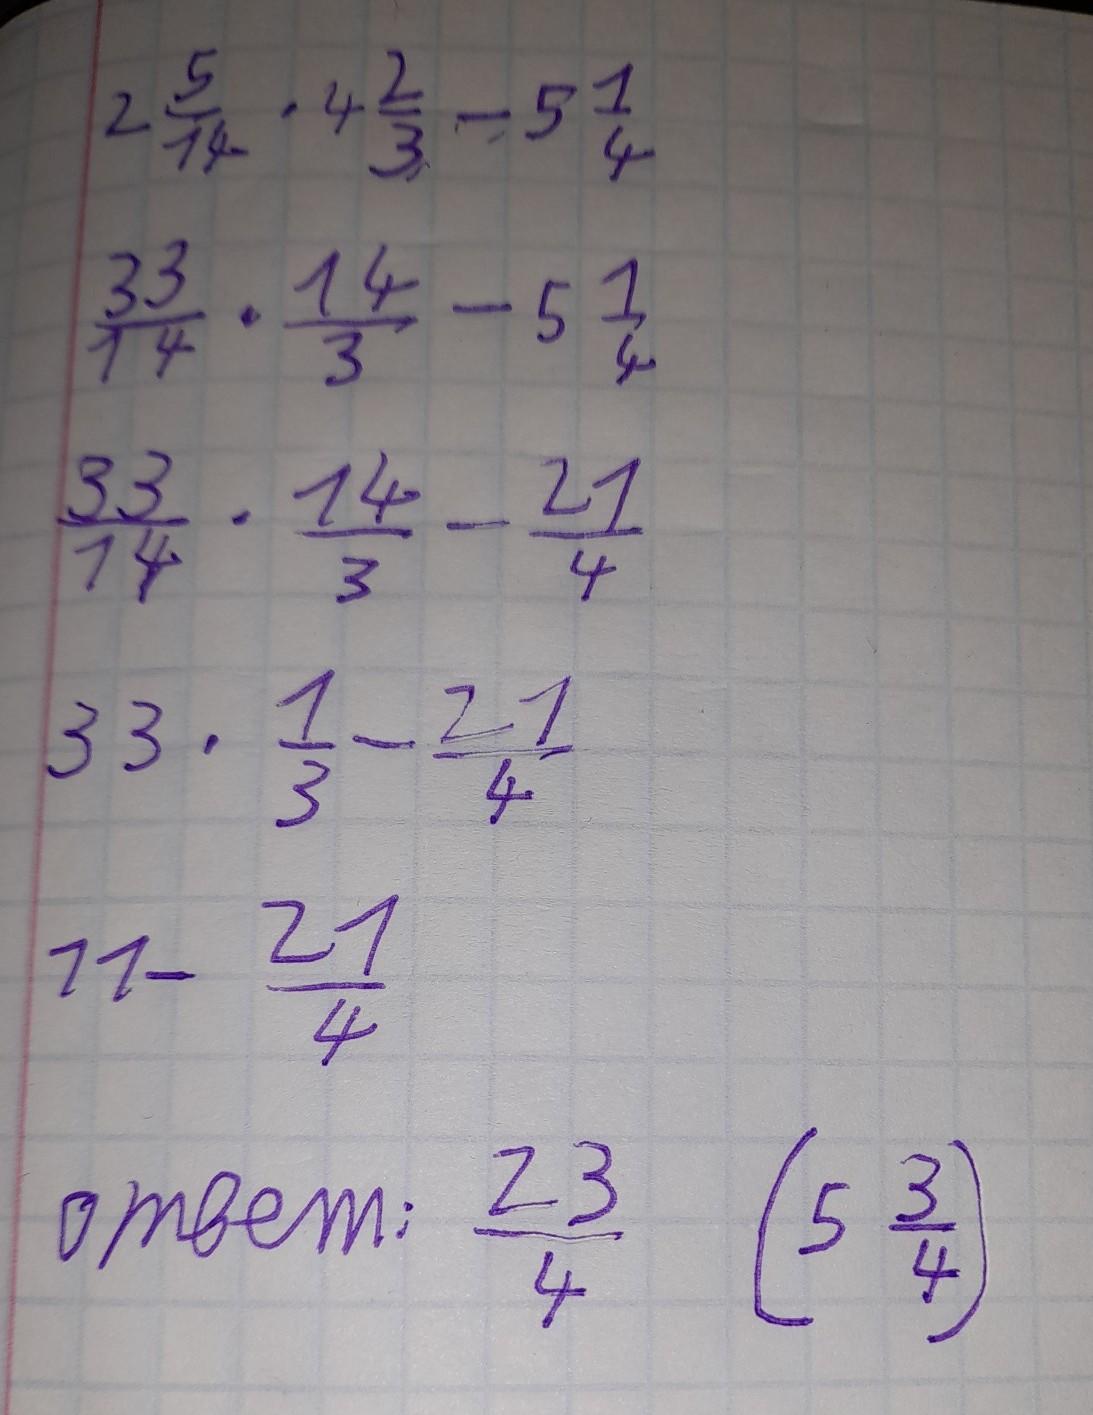 2 5/14 · 4 2/3 - 5 1/4
33/14 · 14/3 - 5 1/4
33/14 · 14/3 - 21/4
33 · 1/3 - 21/4
11 - 21/4
ответ: 23/4 (5 3/4)